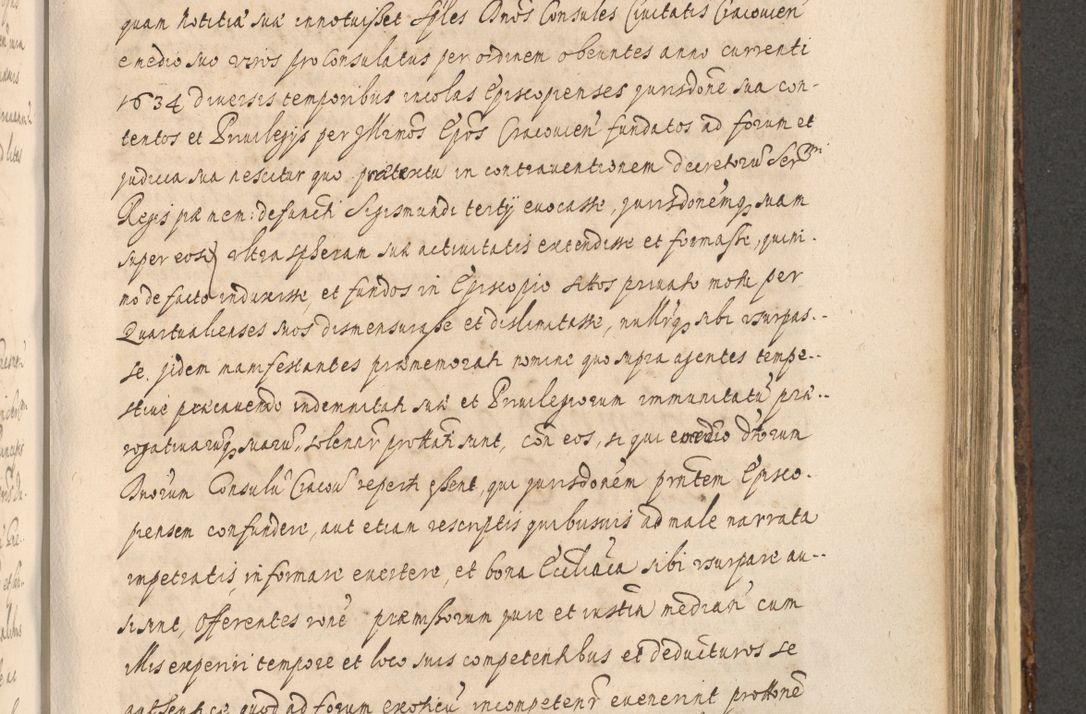 quam notitiæ suæ innotuisset Sples Dnos Consules Civitatis Cracovien
e medio suo viros pro Consulatus per ordinem obeuntes anno currenti
1634 diversis temporibus incolas Episcopienses jurisdone sua con-
tentos et Privilegijs per Illrmos Epos Cracovien fundatos ad forum et
judicia sua nescitur quo prætextu in contraventionem decretoru Sermi
Regis piæ mem: defuncti Sigismundi tertij evocasse, jurisdonemq suam
super eos ultra spheram suæ activitatis extendisse et formasse, quini-
mo de facto induxisse, et fundos in Episcopio sitos privato motu per
Quartualienses suos dismensurasse et dislimitasse, nullisq sibi usurpas-
se. jidem manifestantes præmemorati nomine quo supra agentes tempe-
stive præcavendo indemnitati suæ et Privilegiorum immunitatu præ-
rogativaruq suaru, solenar prottati sunt, con eos, si qui e medio dtorum
Dnorum Consulu Cracov reperti essent, qui jurisdonem pntem Episco-
piensem confundere, aut etiam rescriptis quibusvis ad male narrata
impetratis, informare evertere, et bona Eccliaca sibi usurpare au-
si sint, Offerentes rone præmissorum jure et iustitia median cum
illis experiri tempore et loco suis competentibus et deducturos se
authentice quod ad forum exoticu incompetens evenerint prottone